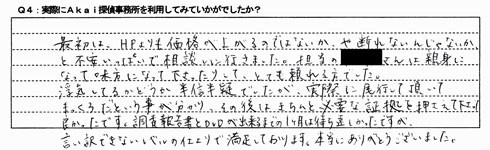 Q4：実際にAkai探偵事務所を利用してみていかがでしたか？
最初は、HPよりも価格が上がるのではないか、や断れないんじゃないか、
と不安いっぱいで相談しに行きました。担当の さんは親身に
なって味方になって下さったりして、とても頼れる方でした。
浮気してるかどうか半信半疑でしたが、実際に尾行して頂いて
まっくろだという事が分かり、その後はきちんと必要な証拠を押さえて下さり
良かったです。調査報告書とDVDが出来るまでの1ヶ月は待ち遠しかったですが、
言い訳できないレベルの仕上りで満足しております。本当にありがとうございました。